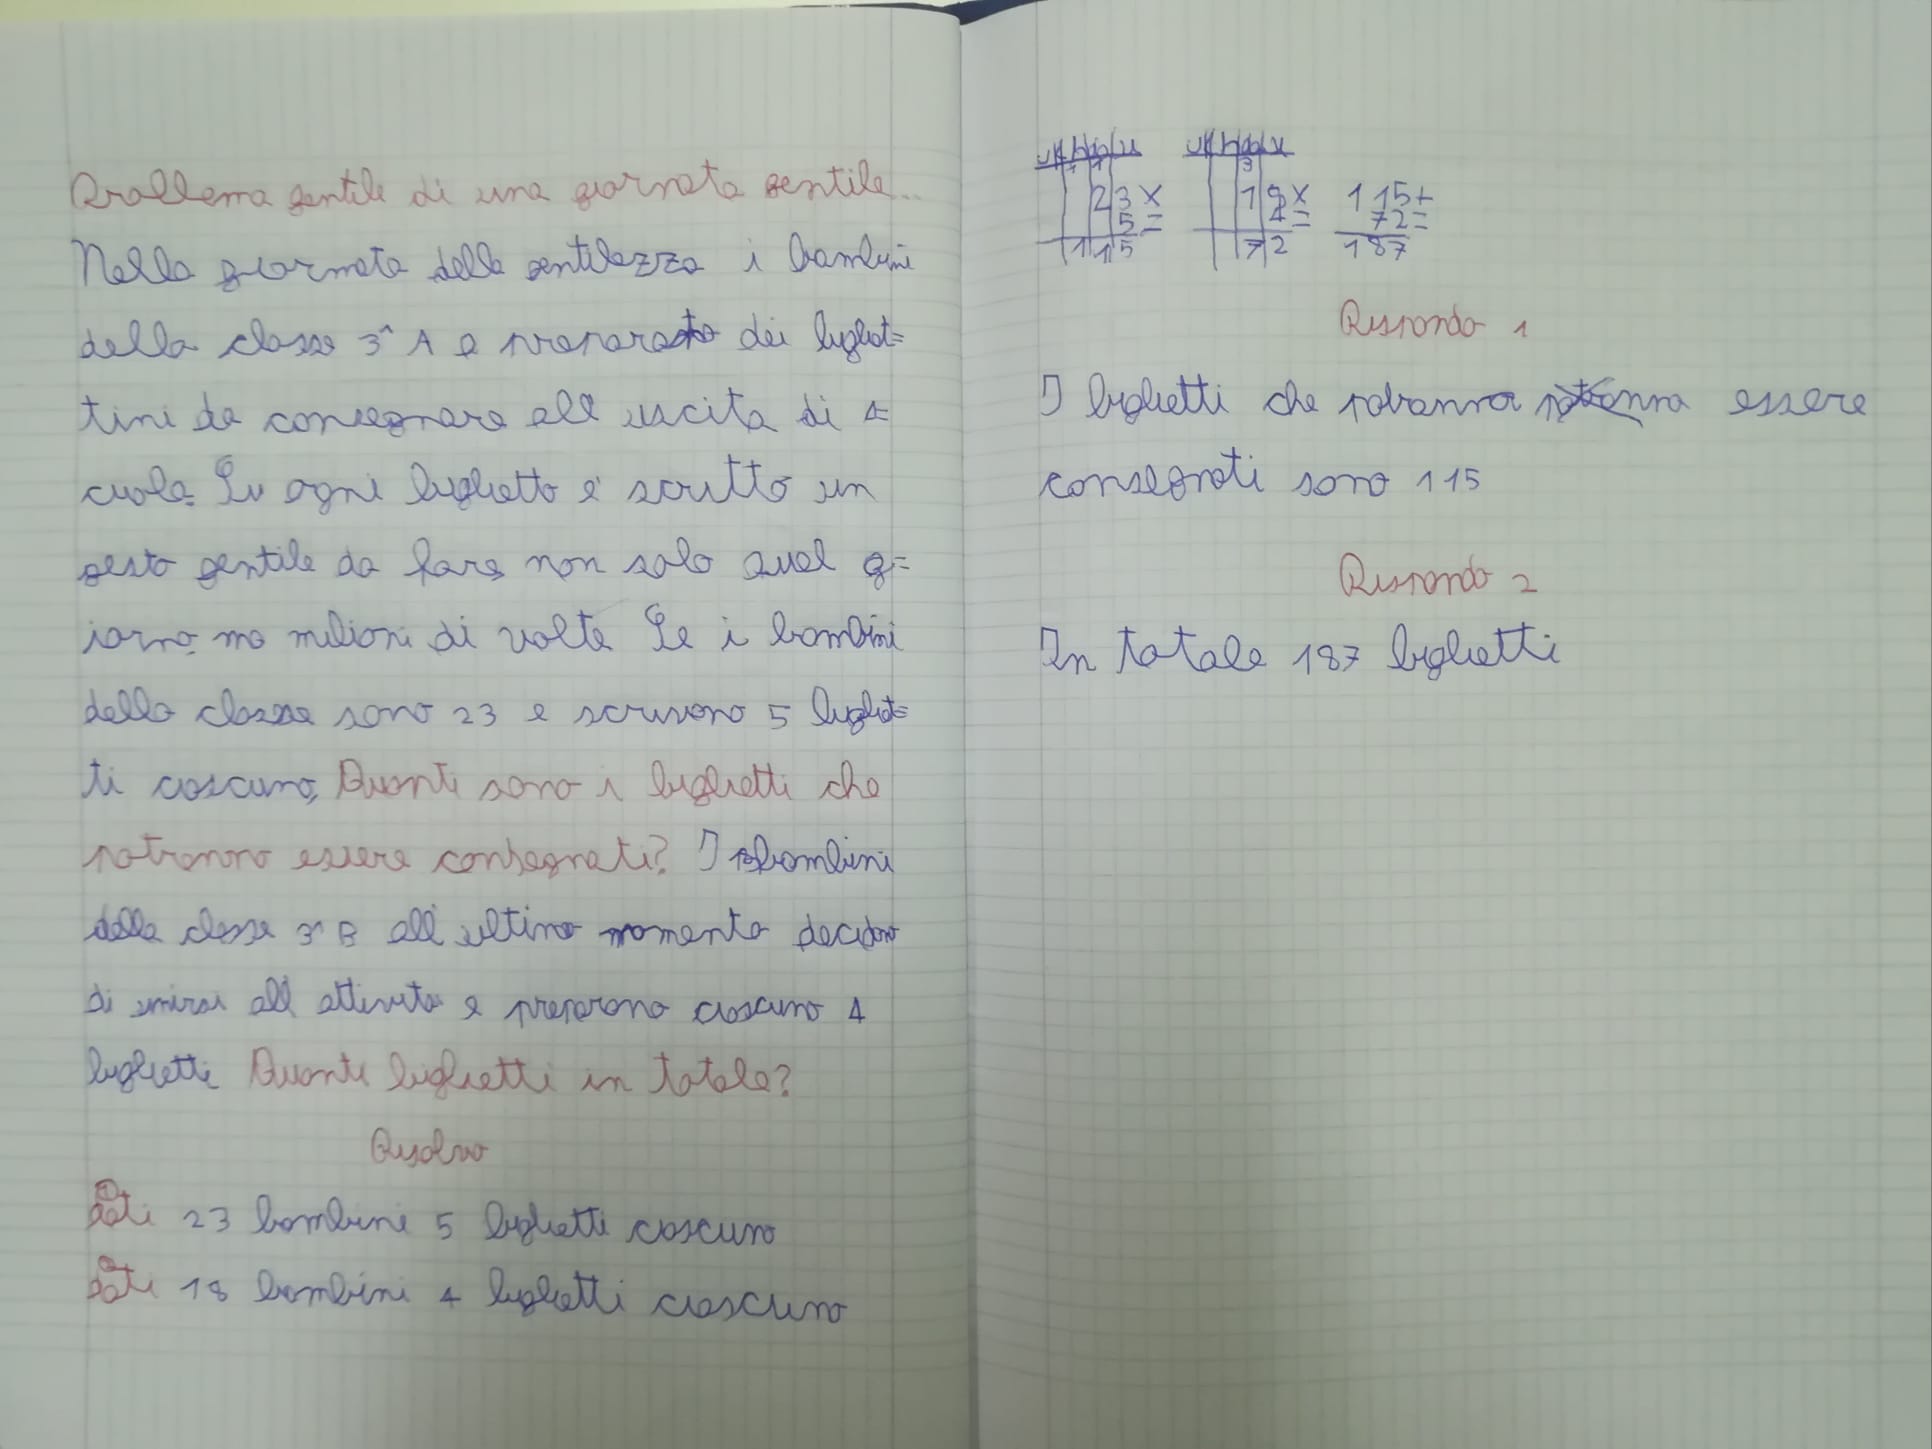 Problema gentile di una giornata gentile...
Nella giornata della gentilezza i bambini
della classe 3^A e preparato dei bigliet=
tini da consegnare all uscita di s=
cuola. Su ogni biglietto e' scritto un
gesto gentile da fare non solo quel g=
iorno, ma milioni di volte Se i bambini
della classe sono 23 e scrivono 5 bigliet=
ti ciascuno, Quanti sono i biglietti che
potranno essere consegnati? I bambini
della classe 3^B all'ultimo momento decidono
di unirsi all attivita e preparano ciascuno 4
biglietti Quanti biglietti in totale?
Risolvo
dati 23 bambini 5 biglietti cascuno
dati 18 bambini 4 biglietti ciascuno
uk h da u uk h da u
1 1 3
23 x 18 x 115+
5 = 4 = 72=
115 72 187
Rispondo 1
I biglietti che potranno essere
consegnati sono 115
Rispondo 2
In totale 187 biglietti